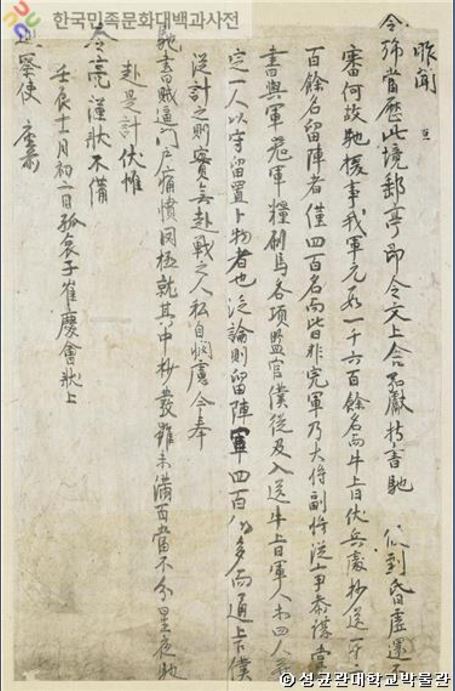 한국민족문화대백과사전
昨聞
令 施當歷此境郵亭 即令文上舍
審何故馳援事我軍元百一千六百餘名而牛上日伏兵處抄送一千二
百餘名留陣者僅四百名而皆非完軍乃大將副將從事參謀
書與軍器軍糧刷馬各項監官僕從及入送牛上日軍人
定一人以守留置卜物者也 泛論則留陣軍四百 多而通上下僕
從計之則實無赴戰之人私自悶慮今奉
馳書賊逼門戶痛憤罔極就其中抄發雖未滿百當不分星夜馳
赴是計伏惟
令亮謹狀不備
壬辰十一月初二日孤哀子崔慶會狀上
巡察使
© 성균관대학교박물관